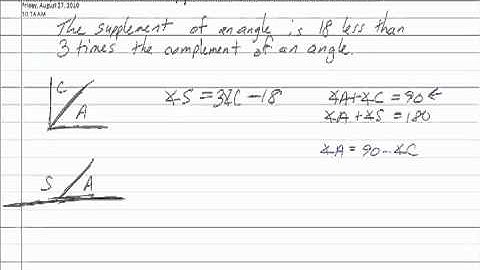 Friday, August 27, 2010
10:14 AM
The supplement of an angle is 18 less than
3 times the complement of an angle.
C
A
∡S = 3∡C - 18
∡A + ∡C = 90 ←
∡A + ∡S = 180
∡A = 90 - ∡C
S
A